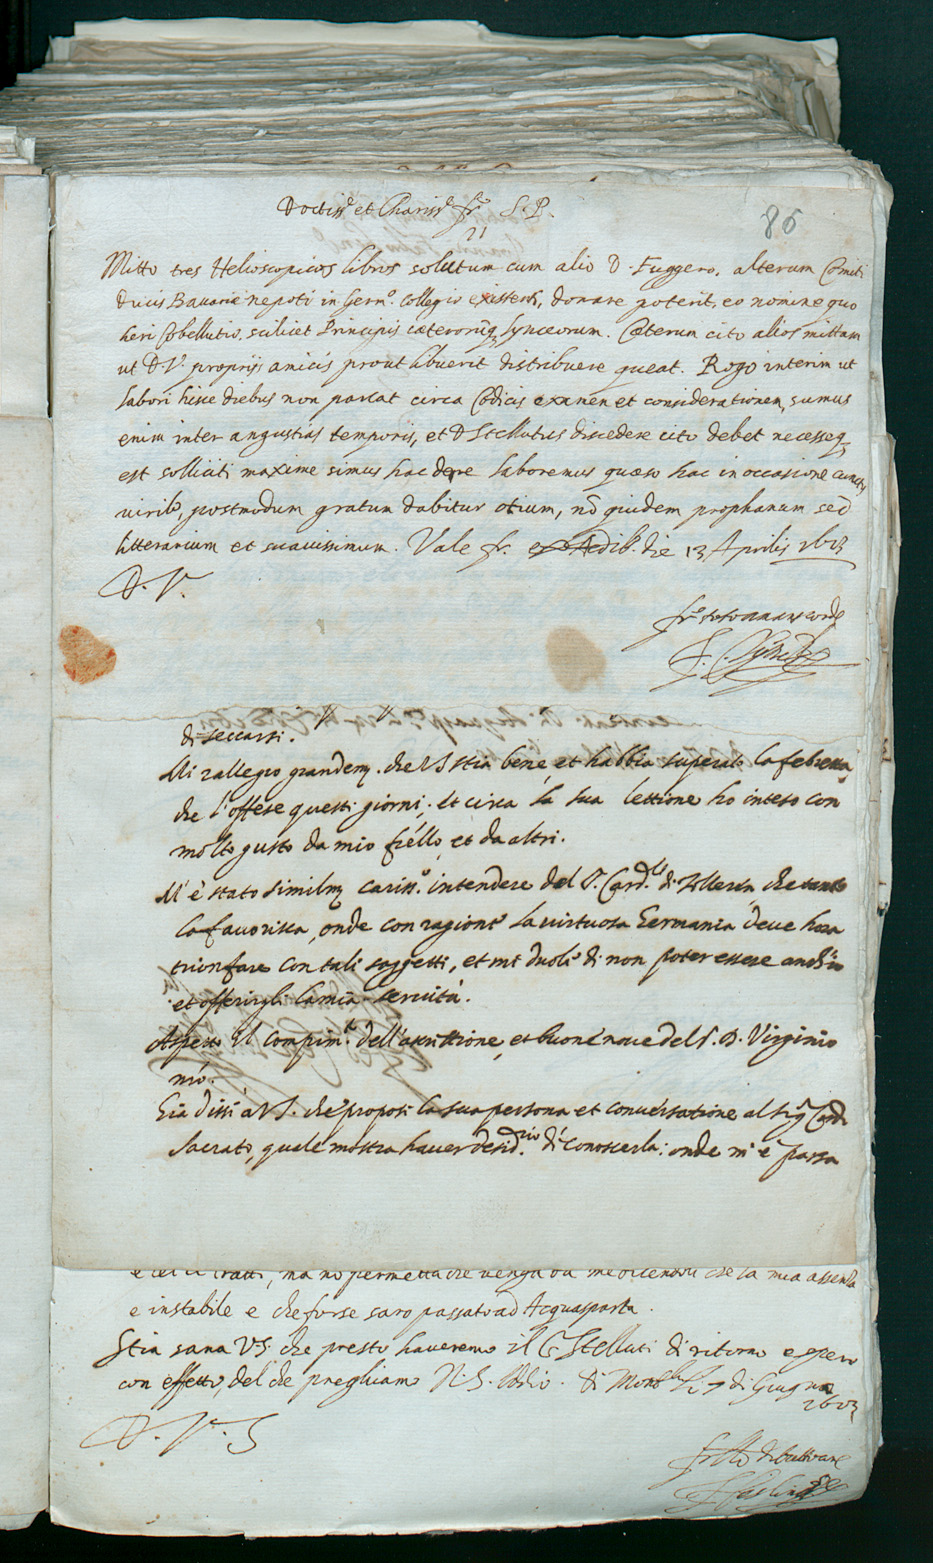 Doctiss.e et Chariss.e fr. S. P.
86
Mitto tres Helioscopicos libros solutum cum alio D. Fuggero, alterum Comiti
Ducis Bavariæ nepoti in Germ.o Collegio existenti, donare poterit, eo nomine quo
heri Cobellutio, scilicet Principis cæterorumq Lynceorum. Cæterum cito alios mittam
ut D.V. proprijs amicis prout libuerit distribuere queat. Rogo interim ut
labori hisce diebus non parcat circa Codicis examen et considerationem, sumus
enim inter angustias temporis, et D Stellutus discedere cito debet necesseq
est solliciti maxime simus hac de re laboremus quæso hac in occasione cunctis
virib, postmodum gratum dabitur otium, nõ quidem prophanum sed
litterarium et suavissimum. Vale fr. ex Ædib. die 13 Aprilis 1623
D. V.
fr. toto amans corde
F. C. Lynceus
di seccarsi.
Mi rallegro grandem. che VS stia bene, et habbia superato la febretta,
che l'offese questi giorni; et circa la sua lettione ho inteso con
molto gusto da mio fr̃ello, et da altri.
M'è stato similm cariss.o intendere del S. Card.le di Zolleren, che tanto
la favorisca, onde con ragione la virtuosa Germania deve hora
trionfare con tali soggetti, et mi duole di non poter essere anch'io
et offerirgli la mia servitù.
Aspetto il compim.to dell'ascrittione, et buone nove del S. D. Virginio
nr̃o.
Già dissi a VS. che proposi la sua persona et conversatione al Sig.r Card.
Sacrato, quale mostra haver desid.rio di conoscerla; onde m'è parsa
e instabile e che forse saro passato ad Acquasparta.
Stia sana V.S. che presto haveremo il S.r Stelluti di ritorno e spero
con effetto, del che preghiamo N. S. Iddio. di Mont.li li 7 di Giugno
1623
D. V. S